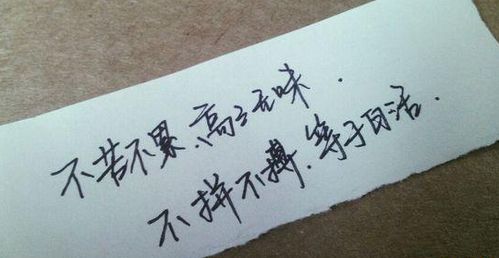 不苦不累、高三无味.
不拼不搏、等于白活.